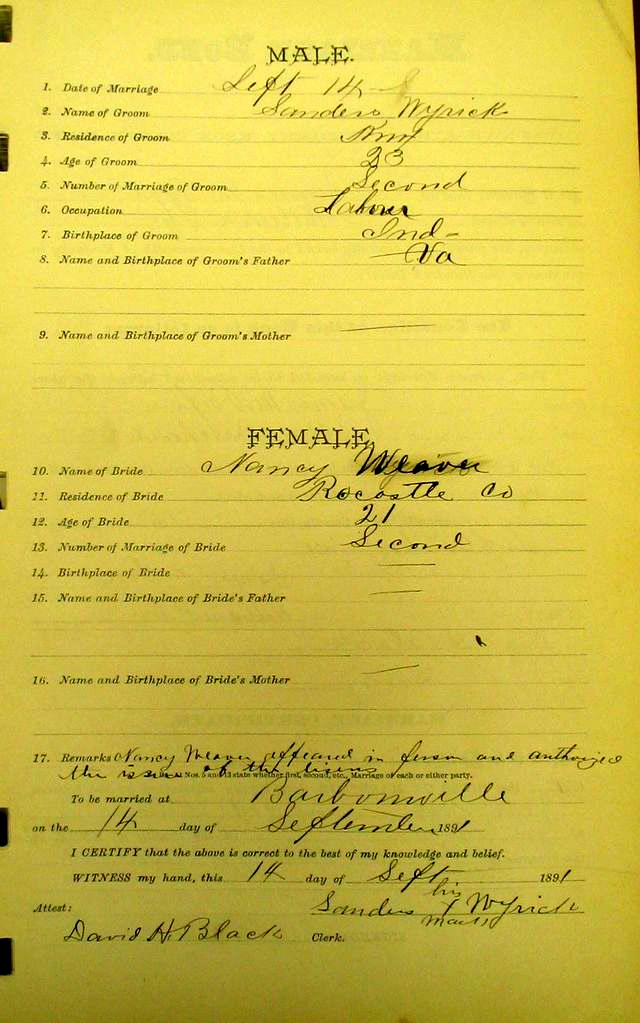 MALE.
1. Date of Marriage Sept 14
2. Name of Groom Sanders Wyrick
3. Residence of Groom Knox
4. Age of Groom 23
5. Number of Marriage of Groom Second
6. Occupation Labour
7. Birthplace of Groom Ind-
8. Name and Birthplace of Groom's Father — Va
9. Name and Birthplace of Groom's Mother —
FEMALE.
10. Name of Bride Nancy Weaver
11. Residence of Bride Rocastle Co
12. Age of Bride 21
13. Number of Marriage of Bride Second
14. Birthplace of Bride —
15. Name and Birthplace of Bride's Father —
16. Name and Birthplace of Bride's Mother —
17. Remarks Nancy Weaver appeared in person and authorized
the issue of the lisens
Nos. 5 and 13 state whether first, second, etc., Marriage of each or either party.
To be married at Barbourville
on the 14 day of September 1891
I CERTIFY that the above is correct to the best of my knowledge and belief.
WITNESS my hand, this 14 day of Sept 1891
his
Attest: Sanders x Wyrick
mark
David H. Black Clerk.